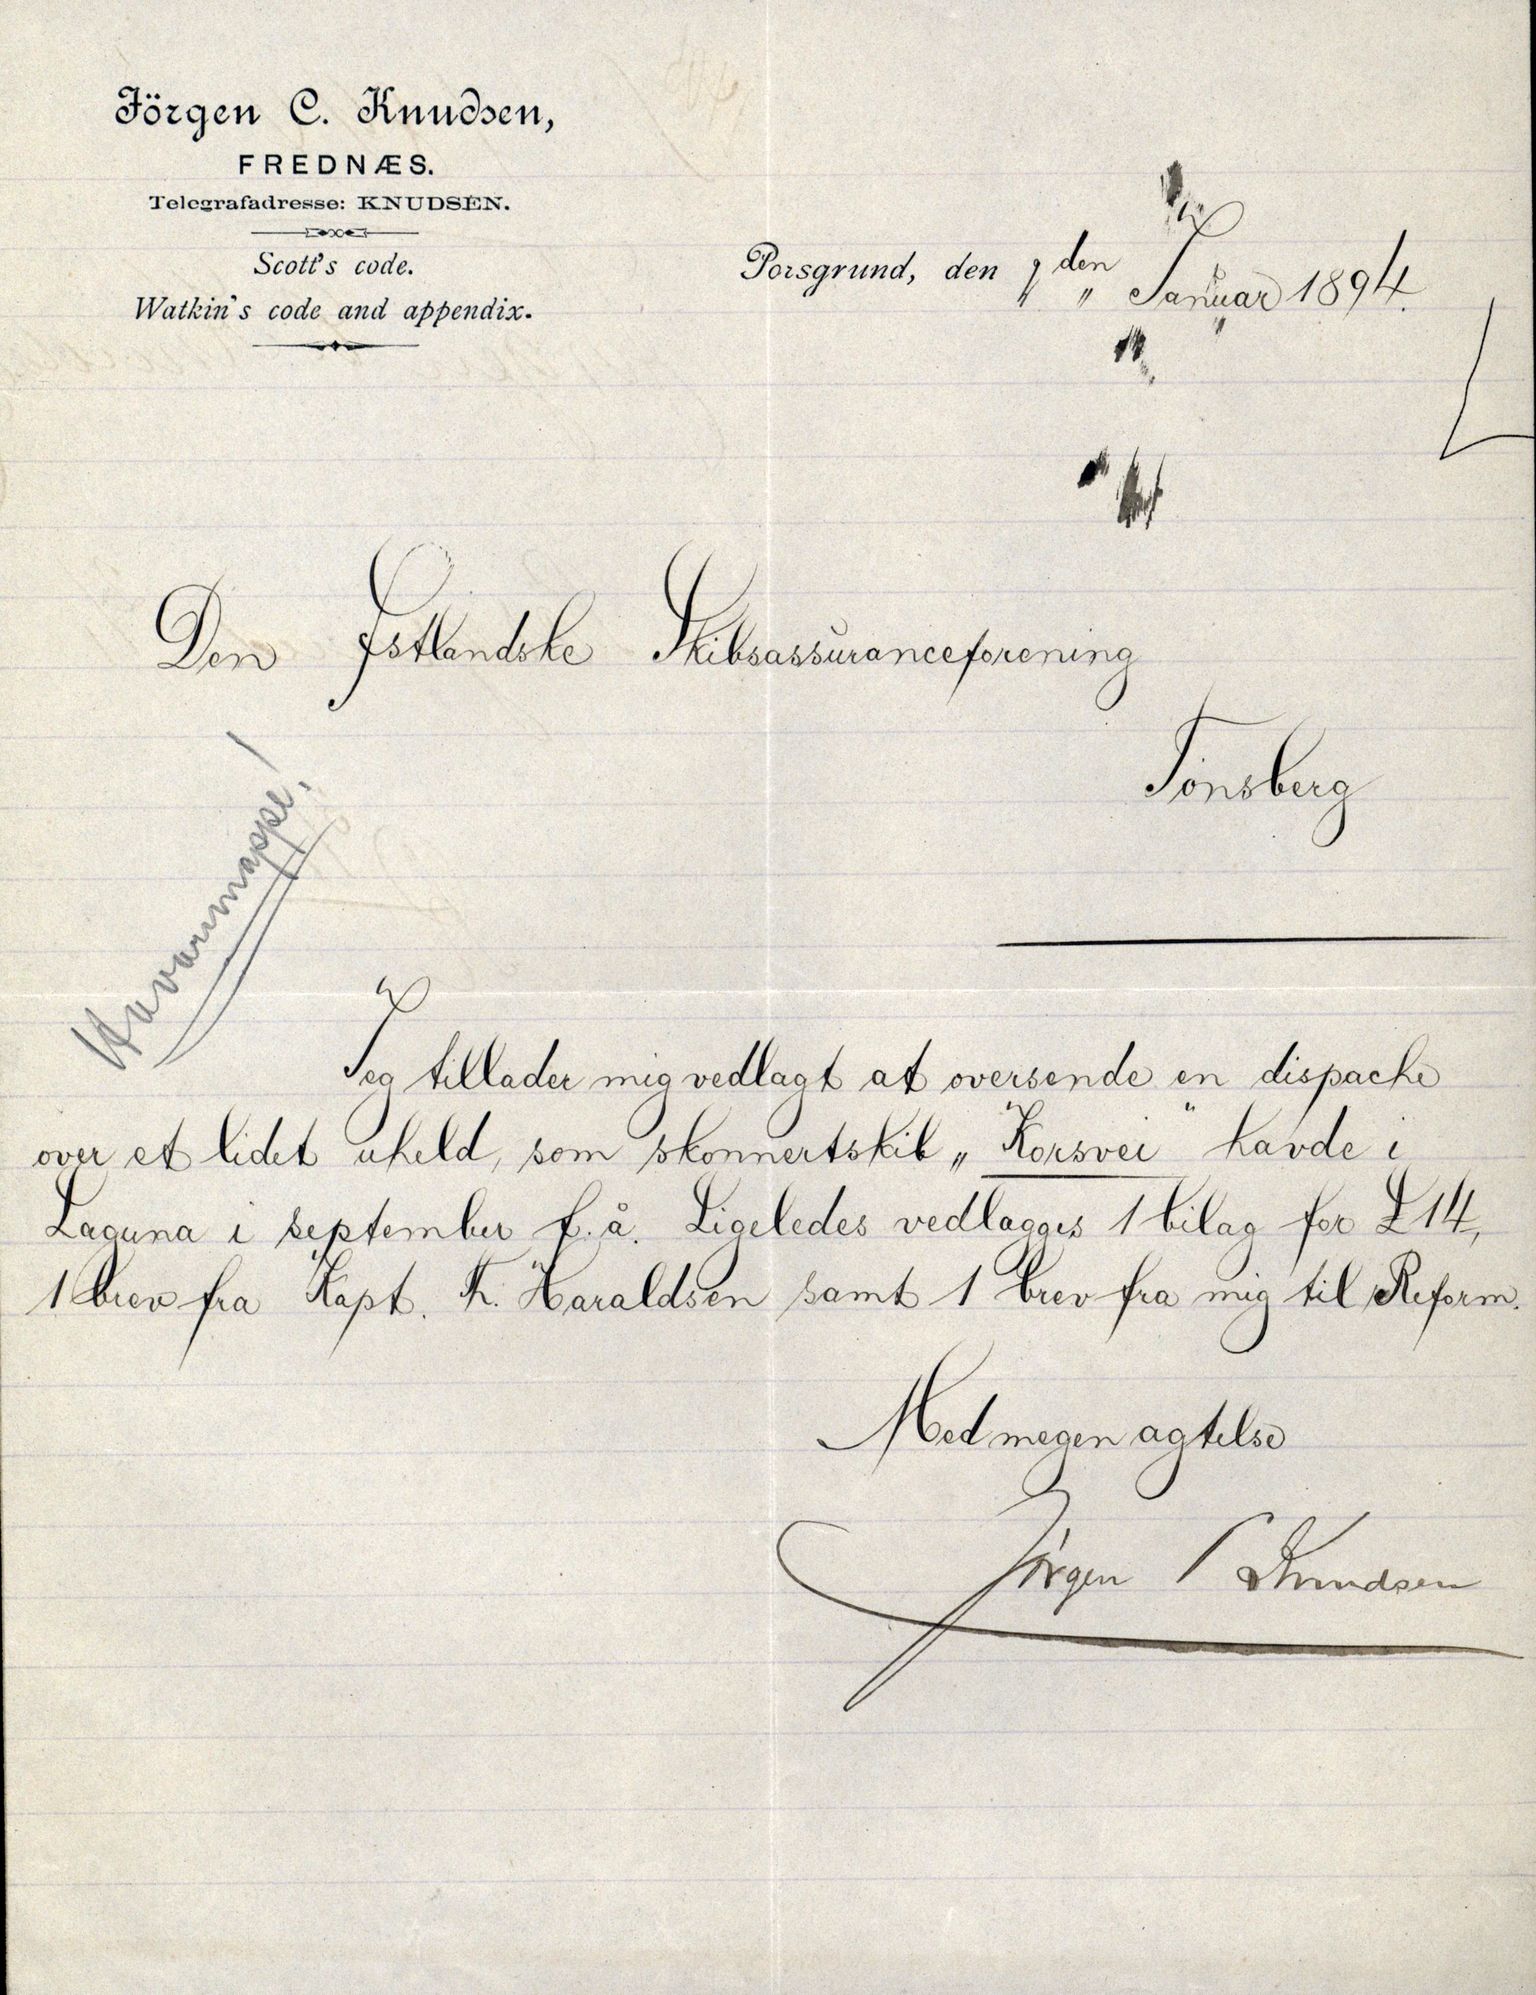 Jörgen C. Knudsen,
FREDNÆS.
Telegrafadresse: KNUDSEN.
Scott's code.
Watkin's code and appendix.
Porsgrund, den 9den Januar 1894.
Den Østlandske Skibsassuranceforening
Tönsberg
Havarimappe!
Jeg tillader mig vedlagt at oversende en dispache
over et lidet uheld, som skonnertskib „Korsvei" havde i
Laguna i september f. å. Ligeledes vedlægges 1 bilag for £ 14,
1 brev fra Kapt. Th. Haraldsen samt 1 brev fra mig til Reform.
Med megen agtelse
Jörgen C Knudsen